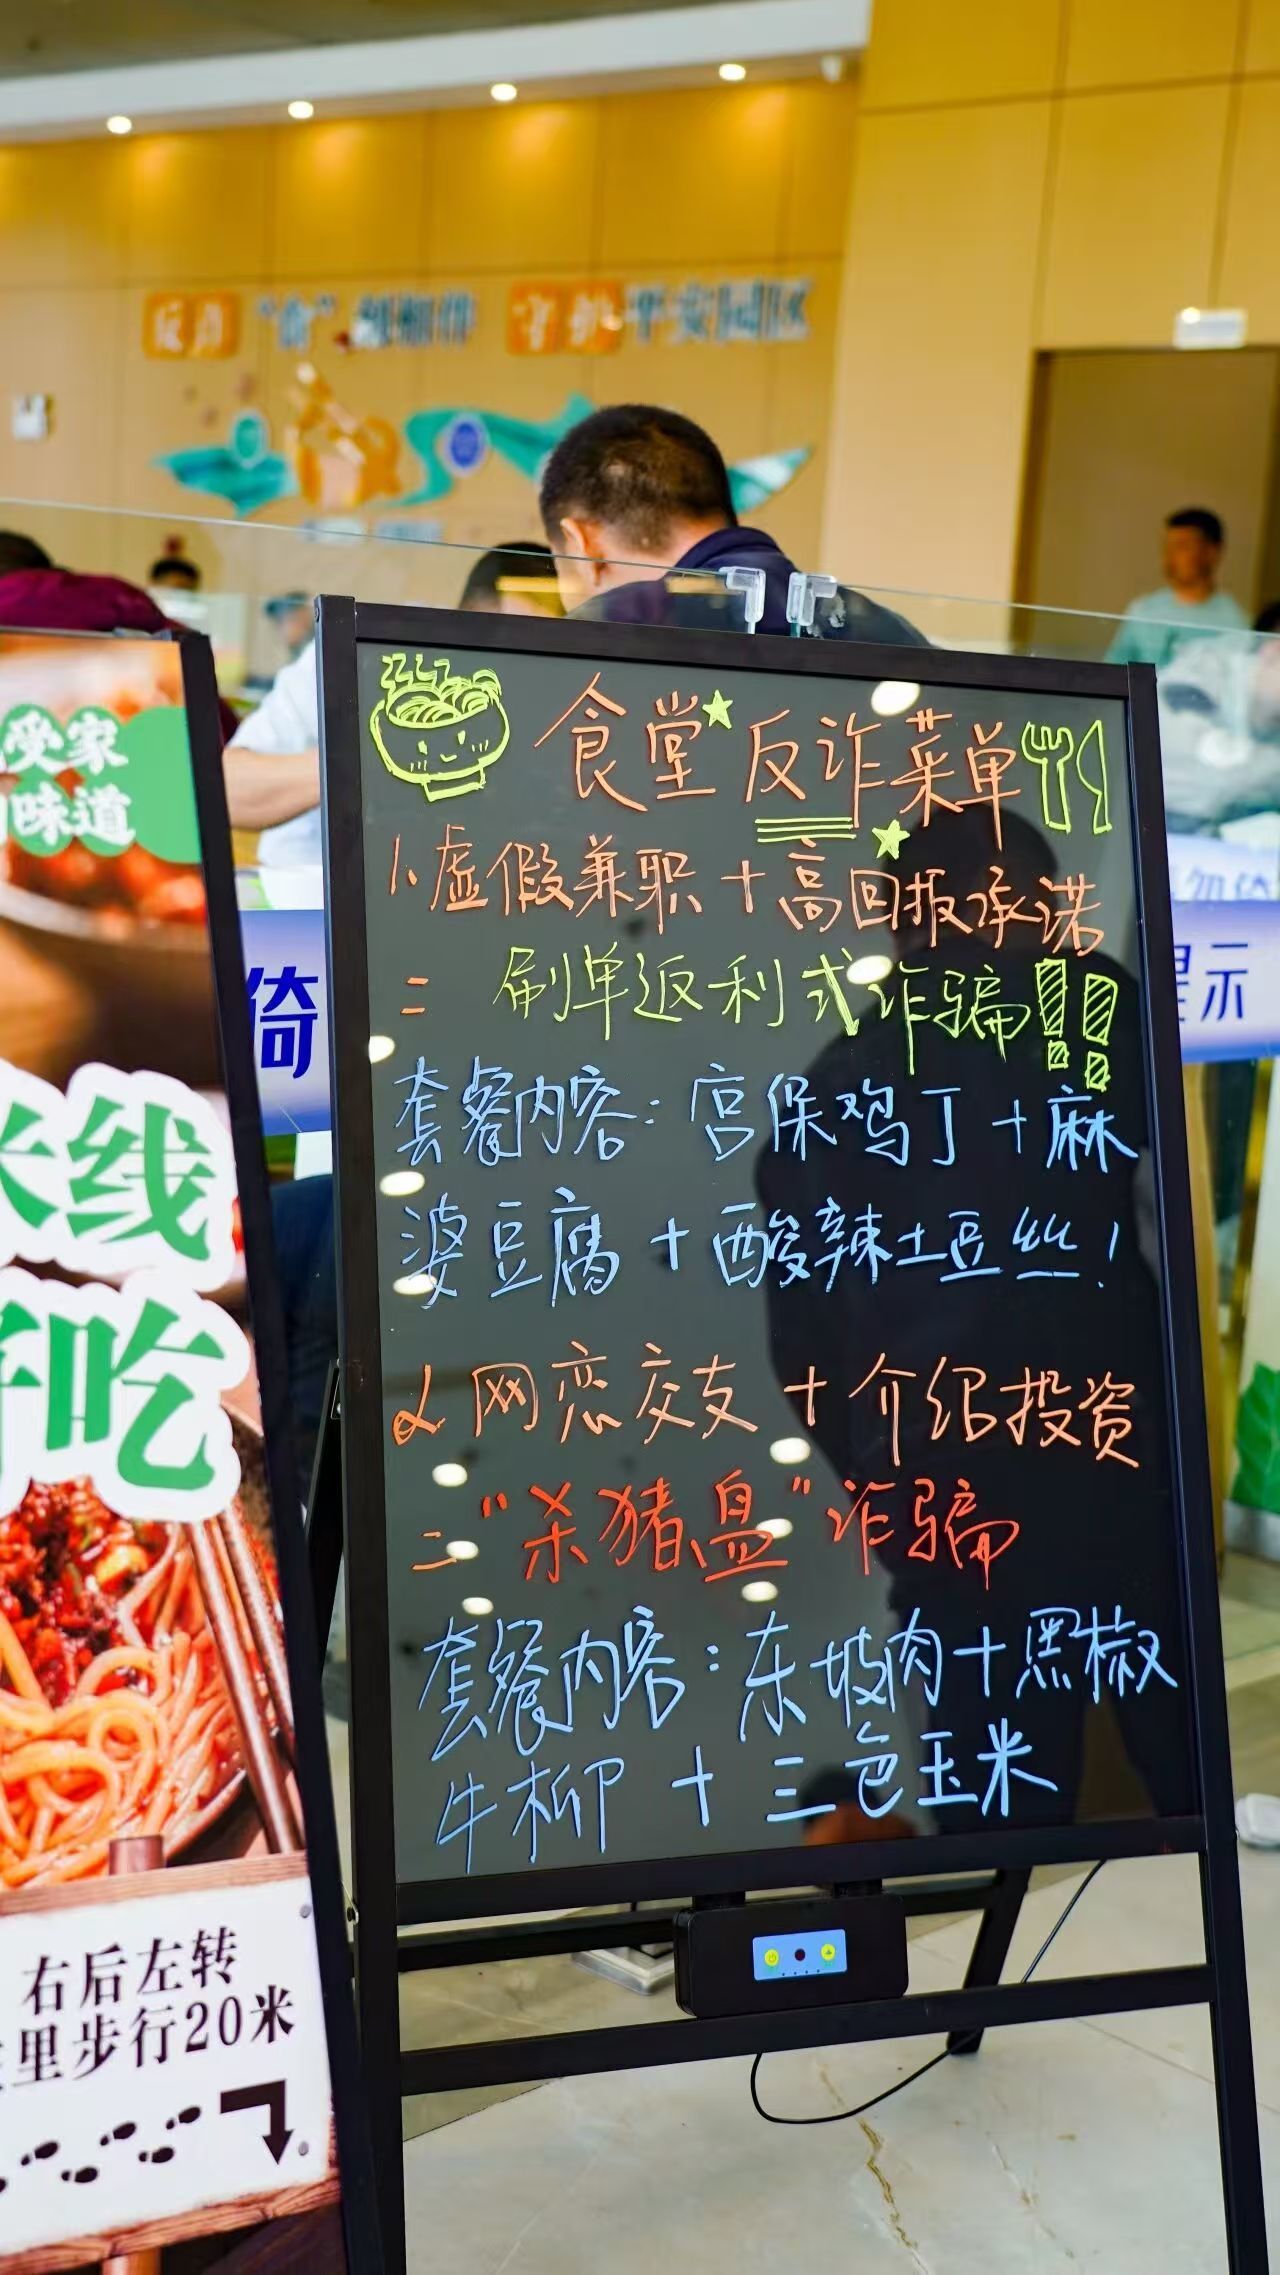 反诈“食”刻相伴 守护平安园区
受家
味道
米线
好吃
右后左转
里步行20米
倚
提示
食堂反诈菜单
1.虚假兼职+高回报承诺
= 刷单返利式诈骗!!
套餐内容:宫保鸡丁+麻
婆豆腐+酸辣土豆丝!
2.网恋交友+介绍投资
="杀猪盘"诈骗
套餐内容:东坡肉+黑椒
牛柳+三色玉米